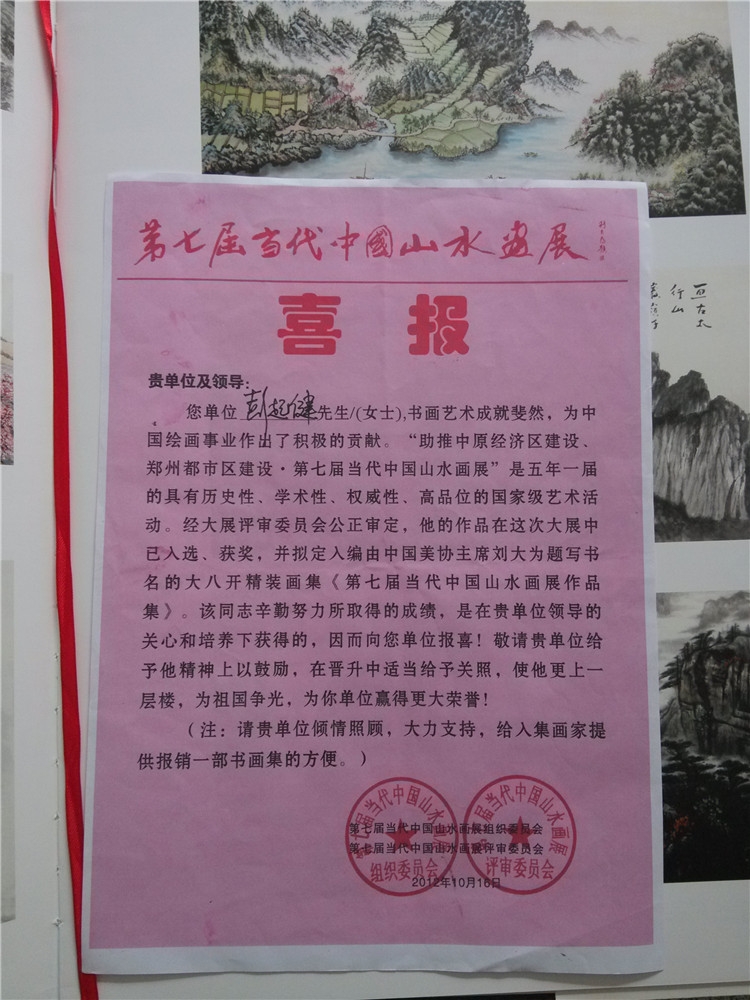 第七届当代中國山水画展
喜报
贵单位及领导：
您单位彭起健先生/(女士),书画艺术成就斐然，为中
国绘画事业作出了积极的贡献。“助推中原经济区建设、
郑州都市区建设·第七届当代中国山水画展”是五年一届
的具有历史性、学术性、权威性、高品位的国家级艺术活
动。经大展评审委员会公正审定，他的作品在这次大展中
已入选、获奖，并拟定入编由中国美协主席刘大为题写书
名的大八开精装画集《第七届当代中国山水画展作品
集》。该同志辛勤努力所取得的成绩，是在贵单位领导的
关心和培养下获得的，因而向您单位报喜！敬请贵单位给
予他精神上以鼓励，在晋升中适当给予关照，使他更上一
层楼，为祖国争光，为你单位赢得更大荣誉!
（注：请贵单位倾情照顾，大力支持，给入集画家提
供报销一部书画集的方便。）
第七届当代中国山水画展组织委员会
第七届当代中国山水画展评审委员会
2012年10月16日
第七届当代中国山水画展
组织委员会
第七届当代中国山水画展
评审委员会
亘古太
行山